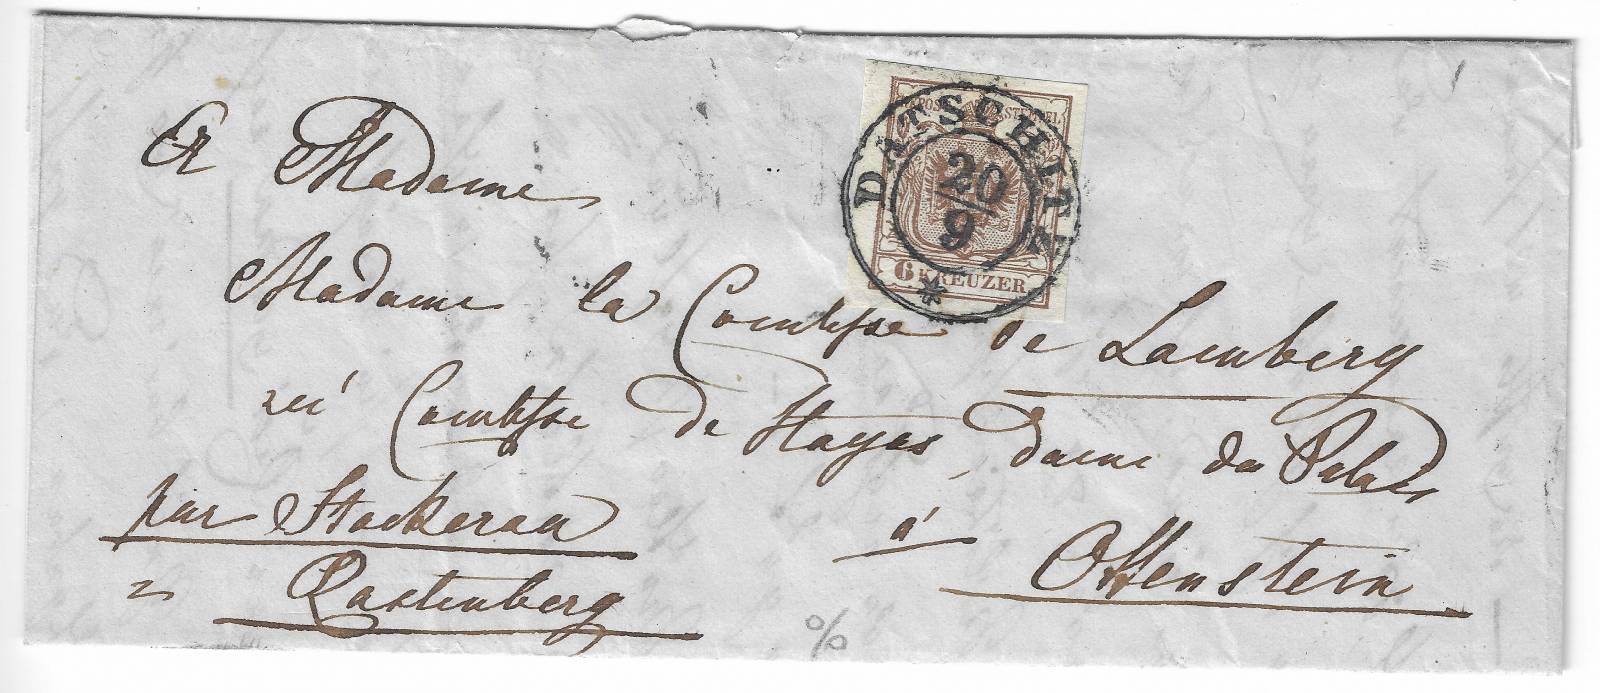 DATSCHITZ
20/9
6 KREUZER
A Madame
Madame la Comtesse de Lamberg
née Comtesse de Hayos, dame du Palais
par Stockerau
à Ottenstein
Rastenberg
%